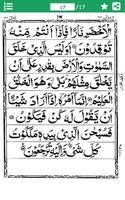 17 /17
الْاَخْضَرِ نَارًا فَاِذَاۤ اَنْتُمْ مِّنْهُ
تُوْقِدُوْنَ اَوَلَيْسَ الَّذِيْ خَلَقَ
السَّمٰوٰتِ وَالْاَرْضَ بِقٰدِرٍ عَلٰۤى
اَنْ يَّخْلُقَ مِثْلَهُمْ بَلٰى وَهُوَ الْخَلّٰقُ
الْعَلِيْمُ اِنَّمَاۤ اَمْرُهٗۤ اِذَاۤ اَرَادَ شَيْـًٔا
اَنْ يَّقُوْلَ لَهٗ كُنْ فَيَكُوْنُ
فَسُبْحٰنَ الَّذِيْ بِيَدِهٖ مَلَكُوْتُ
كُلِّ شَيْءٍ وَّاِلَيْهِ تُرْجَعُوْنَ